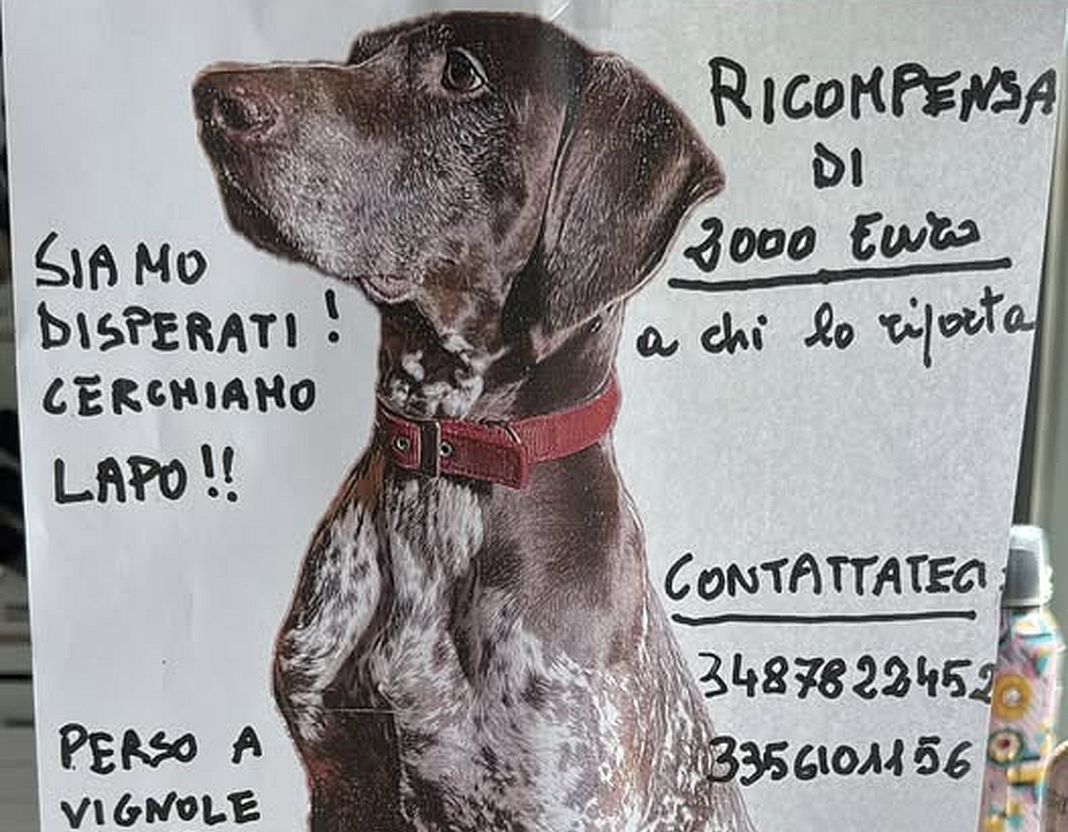 RICOMPENSA
DI
2000 Euro
a chi lo riporta
SIAMO
DISPERATI!
CERCHIAMO
LAPO!!
CONTATTATECI:
3487822452
3356101156
PERSO A
VIGNOLE